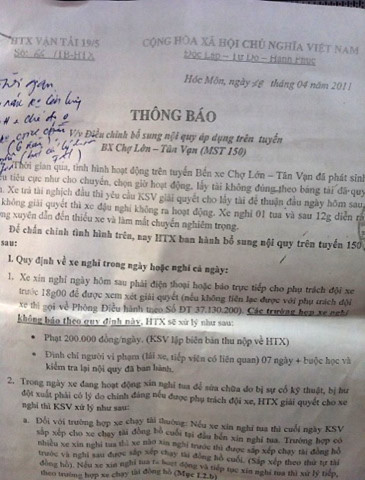 HTX VẬN TẢI 19/5
CỘNG HÒA XÃ HỘI CHỦ NGHĨA VIỆT NAM
Số: 66 /TB-HTX
Độc Lập – Tự Do – Hạnh Phúc
Hóc Môn, ngày 28 tháng 04 năm 2011
THÔNG BÁO
V/v Điều chỉnh bổ sung nội quy áp dụng trên tuyến
BX Chợ Lớn – Tân Vạn (MST 150)
Thời gian qua, tình hình hoạt động trên tuyến Bến xe Chợ Lớn – Tân Vạn đã phát sinh
tiêu cực như cho chuyến, chọn giờ hoạt động, lấy tài không đúng theo bảng tài đã quy
Xe trả tài nghịch đầu thì yêu cầu KSV giải quyết cho lấy tài để thuận đầu ngày hôm sau,
không giải quyết thì xe đậu nghỉ không ra hoạt động. Xe nghỉ 01 tua và sau 12g diễn ra
xuyên dẫn đến thiếu xe và làm mất chuyến nghiêm trọng.
Để chấn chỉnh tình hình trên, nay HTX ban hành bổ sung nội quy trên tuyến 150
sau:
I. Quy định về xe nghỉ trong ngày hoặc nghỉ cả ngày:
1. Xe xin nghỉ ngày hôm sau phải điện thoại hoặc báo trực tiếp cho phụ trách đội xe
trước 18g00 để được xem xét giải quyết (nếu không liên lạc được với phụ trách đội
xe thì gọi về Phòng Điều hành theo Số ĐT 37.130.200). Các trường hợp xe nghỉ
không báo theo quy định này, HTX sẽ xử lý như sau:
• Phạt 200.000 đồng/ngày. (KSV lập biên bản thu nộp về HTX)
• Đình chỉ người vi phạm (lái xe, tiếp viên có liên quan) 07 ngày + buộc học và
kiểm tra lại nội quy đã ban hành.
2. Trong ngày xe đang hoạt động xin nghỉ tua để sửa chữa do bị sự cố kỹ thuật, bị hư
đột xuất phải có lý do chính đáng nếu được phụ trách đội xe, HTX giải quyết cho xe
nghỉ thì KSV xử lý như sau:
a. Đối với trường hợp xe chạy tài thường: Nếu xe xin nghỉ tua thì cuối ngày KSV
sắp xếp cho xe chạy tài đồng hồ cuối tại đầu bến xin nghỉ tua. Trường hợp có
nhiều xe xin nghỉ tua thì xe nào xin nghỉ trước thì được sắp xếp chạy tài đồng hồ
trước và nghỉ sau được sắp xếp chạy tài đồng hồ cuối. (Sắp xếp theo thứ tự tài
đồng hồ). Nếu xe xin nghỉ tua ra hoạt động và tiếp tục xin nghỉ tua thì xử lý tiếp,
theo trường hợp xe chạy tài đồng hồ (Mục I.2.b)